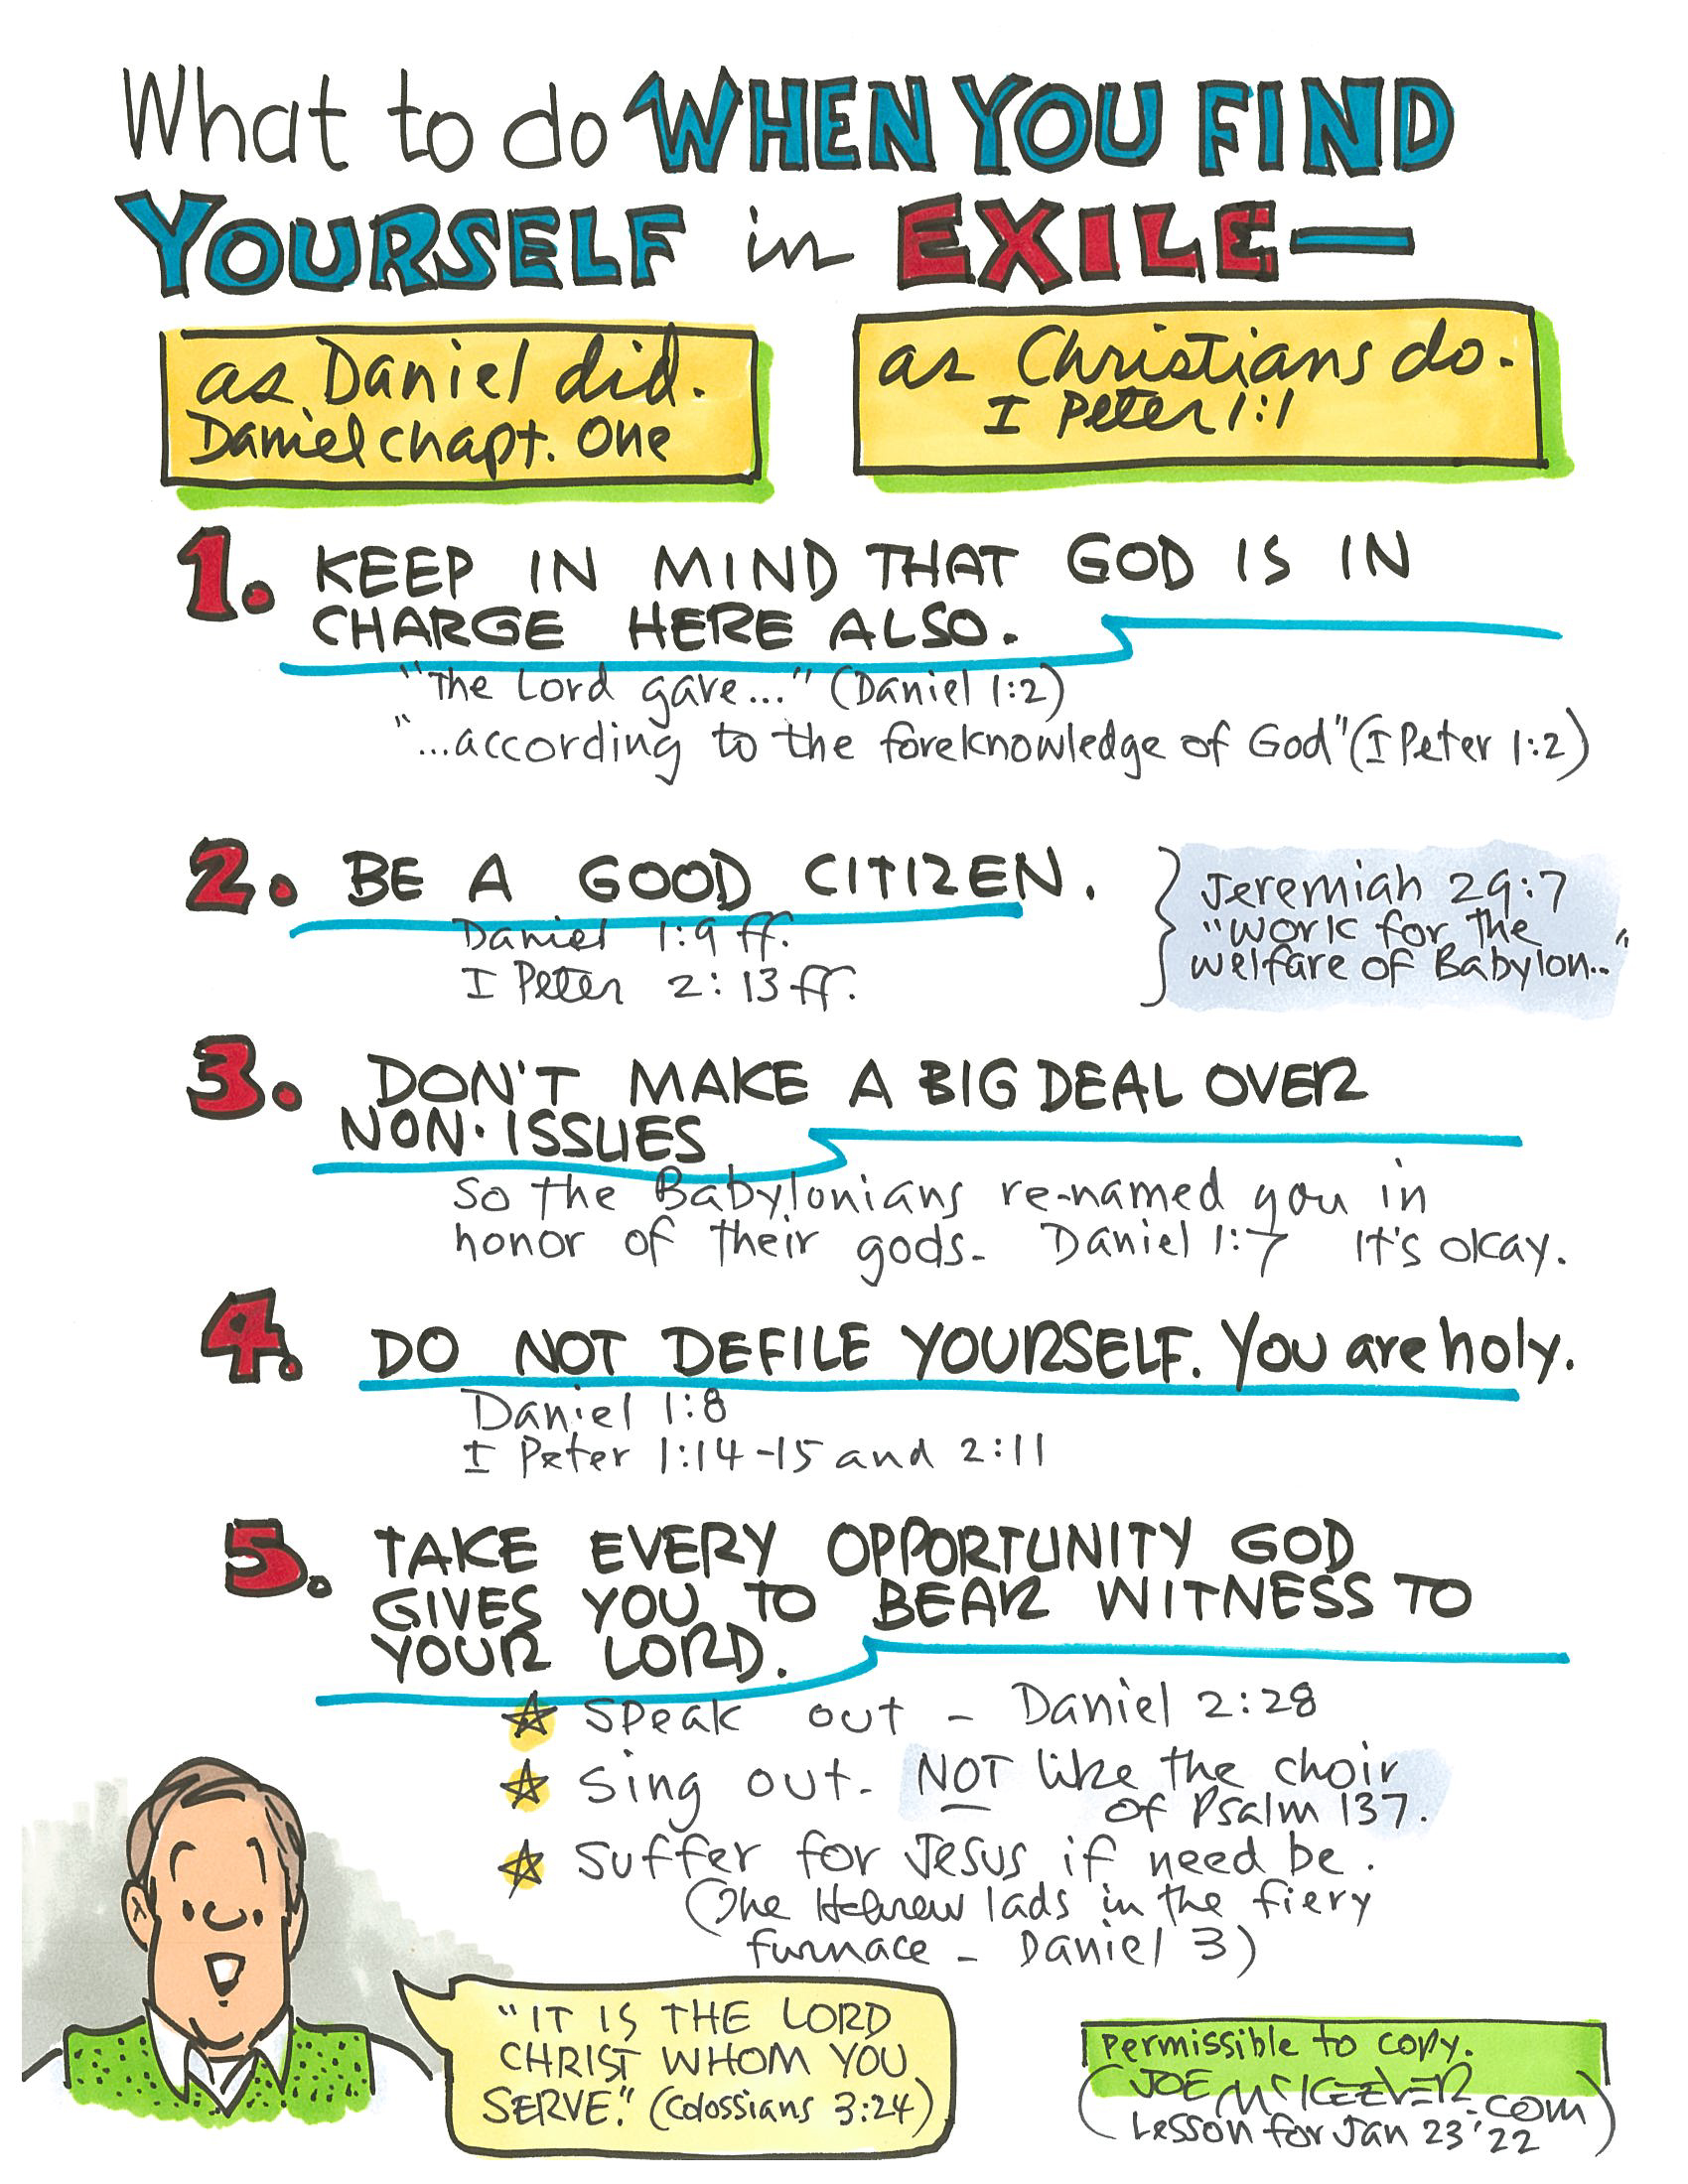 What to do WHEN YOU FIND
YOURSELF in EXILE—
as Daniel did.
Daniel chapt. One
as Christians do.
I Peter 1:1
1. KEEP IN MIND THAT GOD IS IN
CHARGE HERE ALSO.
"The Lord gave..." (Daniel 1:2)
"...according to the foreknowledge of God" (I Peter 1:2)
2. BE A GOOD CITIZEN.
Daniel 1:9 ff.
I Peter 2:13 ff.
Jeremiah 29:7
"Work for the
welfare of Babylon.."
3. DON'T MAKE A BIG DEAL OVER
NON-ISSUES
So the Babylonians re-named you in
honor of their gods- Daniel 1:7 It's okay.
4. DO NOT DEFILE YOURSELF. You are holy.
Daniel 1:8
I Peter 1:14-15 and 2:11
5. TAKE EVERY OPPORTUNITY GOD
GIVES YOU TO BEAR WITNESS TO
YOUR LORD.
Speak out - Daniel 2:28
Sing out- NOT like the choir
of Psalm 137.
Suffer for Jesus if need be.
(The Hebrew lads in the fiery
furnace - Daniel 3)
"IT IS THE LORD
CHRIST WHOM YOU
SERVE." (Colossians 3:24)
Permissible to copy.
(JOEMCKEEVER.COM
Lesson for Jan 23 '22)